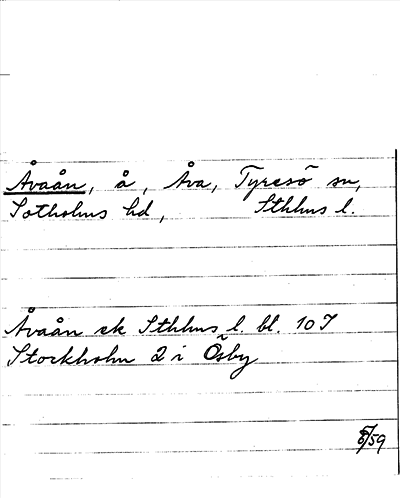 Åvaån, å, Åva, Tyresö sn,
Sotholms hd, Sthlms l.
Åvaån ek Sthlms l. bl. 10 I
Stockholm 2 i Ösby
/59